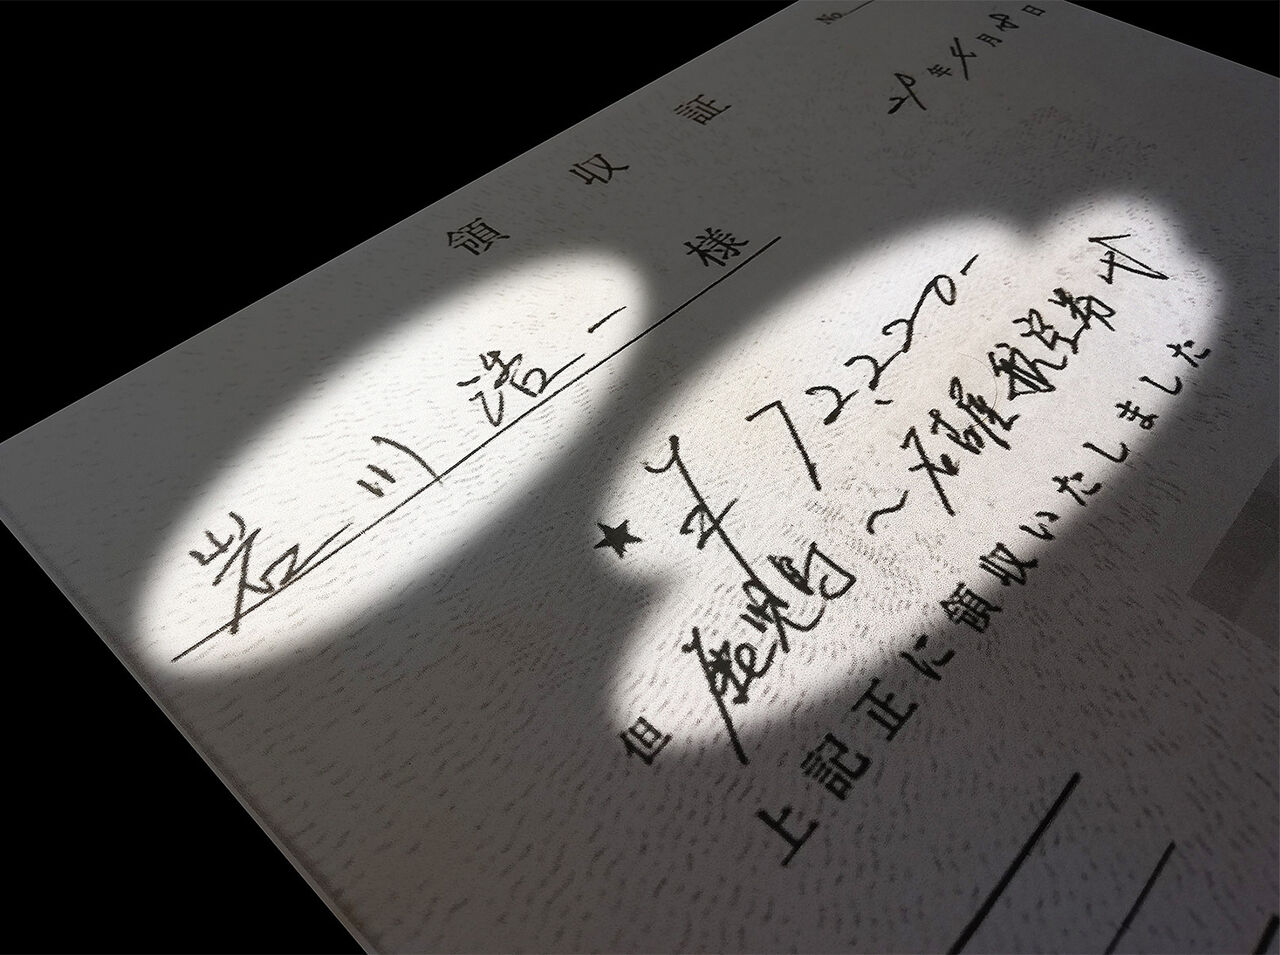 No.
年4月 日
領収証
岩川浩一 様
★ ¥72,220-
但 鹿児島〜名古屋航空券代
上記正に領収いたしました